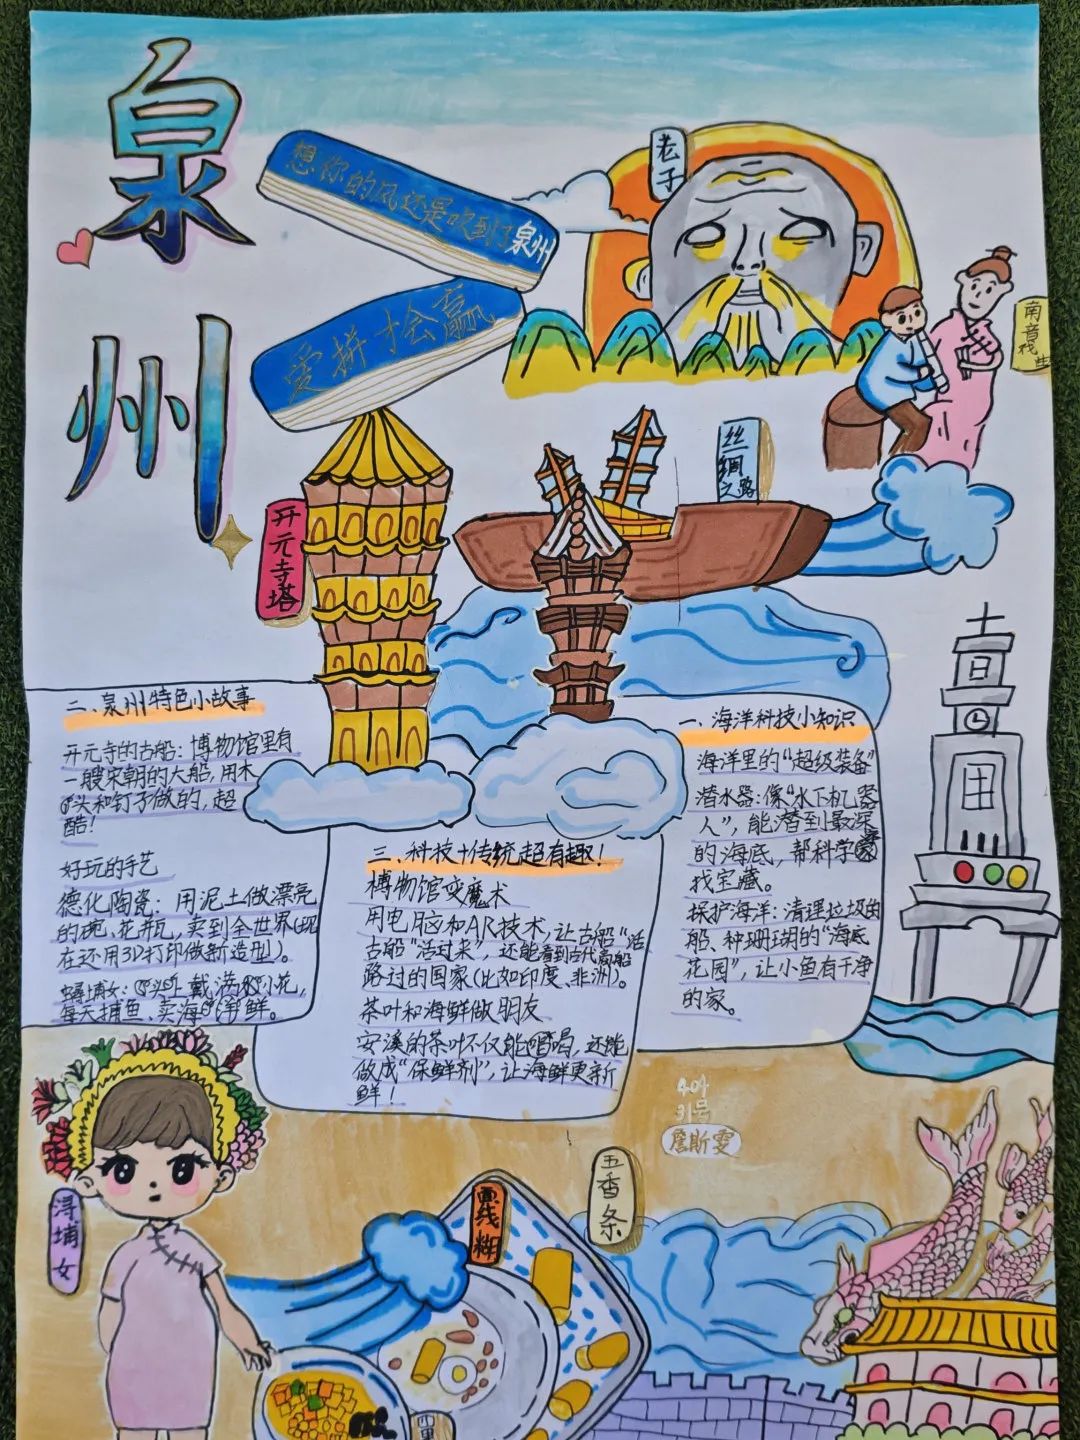 泉州
想你的风还是吹到了泉州
爱拼才会赢
老子
丝绸之路
开元寺塔
二、泉州特色小故事
开元寺的古船：博物馆里有
一艘宋朝的大船，用木
头和钉子做的，超
酷！
好玩的手艺
德化陶瓷：用泥土做漂亮
的碗、花瓶，卖到全世界(现
在还用3D打印做新造型)。
蟳埔女：头上戴满小花，
每天捕鱼、卖海鲜。
三、科技+传统超有趣！
博物馆变魔术
用电脑和AR技术，让古船“活
古船“活过来”，还能看到古代商船
路过的国家(比如印度、非洲)。
茶叶和海鲜做朋友
安溪的茶叶不仅能喝，还能
做成“保鲜剂”，让海鲜更新
鲜！
一、海洋科技小知识
海洋里的“超级装备”
潜水器：像“水下机器
人”，能潜到最深
的海底，帮科学家
找宝藏。
保护海洋：清理垃圾的
船、种珊瑚的“海底
花园”，让小鱼有干净
的家。
31号
詹斯雯
浔埔女
面线糊
五香条